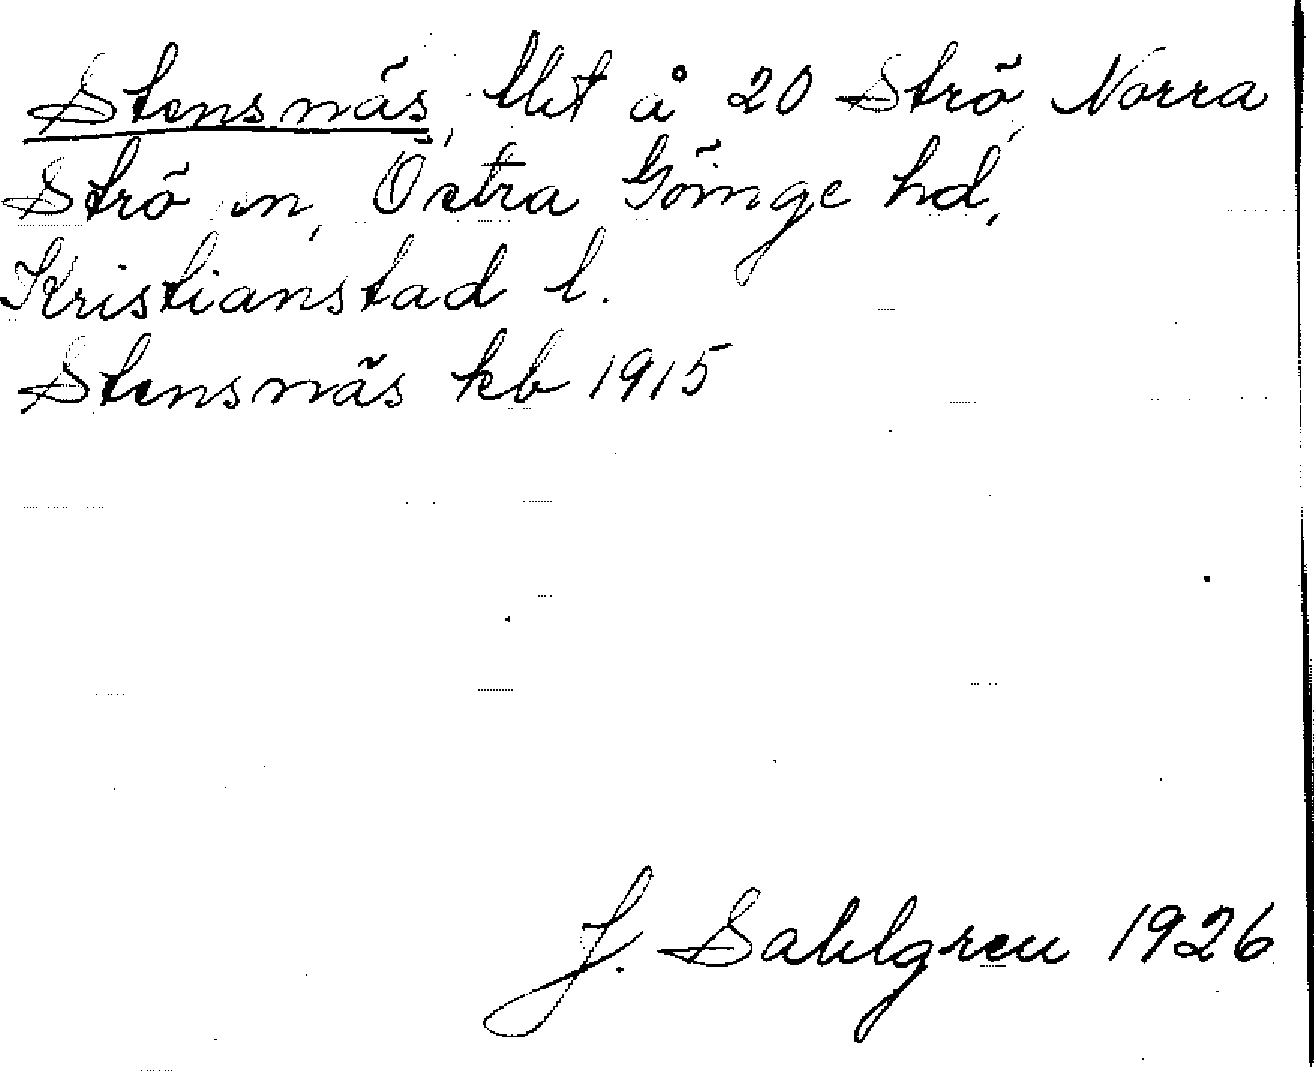 Stensnäs, lht å 20 Strö, Norra
Strö sn, Östra Göinge hd,
Kristianstad l.
Stensnäs kb 1915
J. Sahlgren 1926